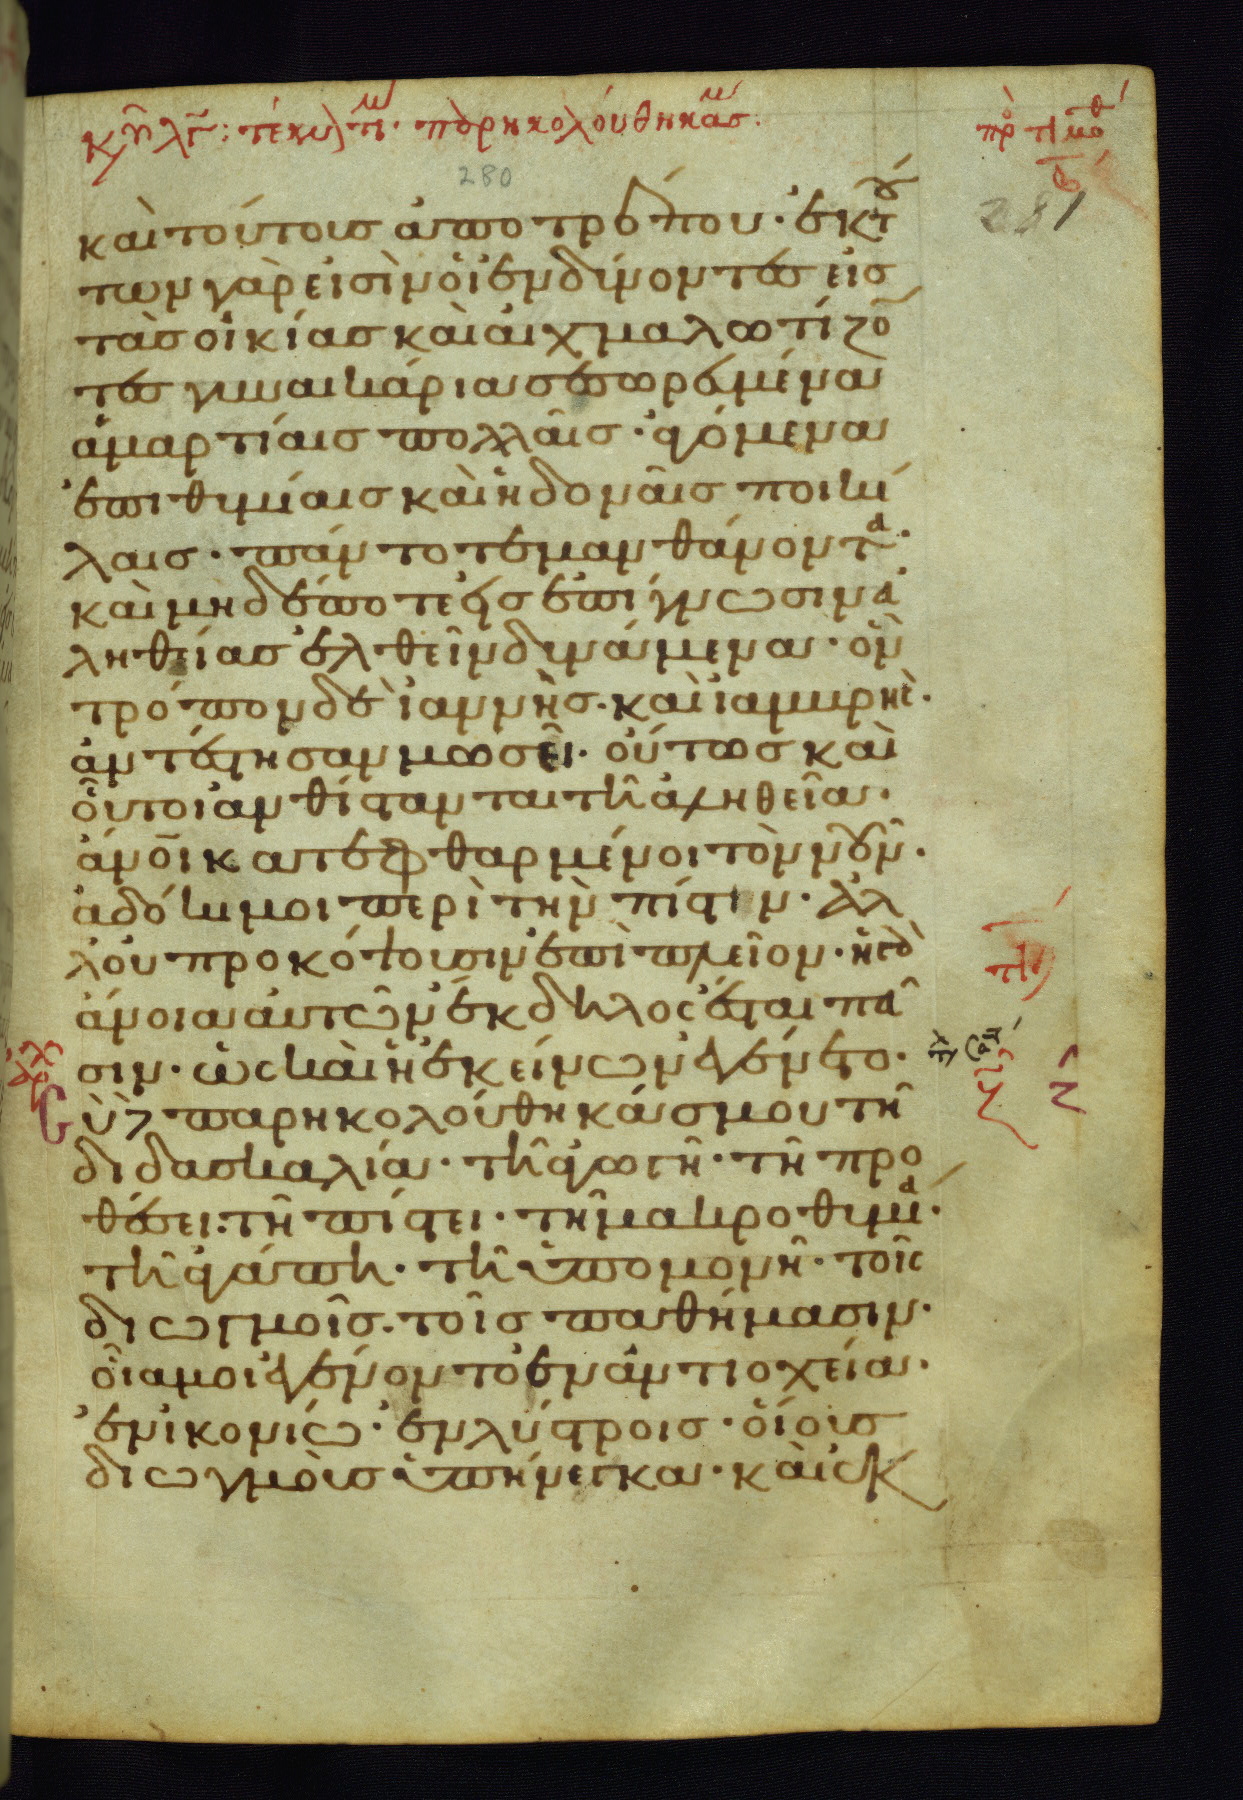 κυ λγ: τέκν τι παρηκολούθηκας:
πρ τιμοθ
β
280
281
καὶ τούτοις ἀποτρέπου· ἐκ τού
των γάρ εἰσιν οἱ ἐνδύνοντες εἰς
τὰς οἰκίας καὶ αἰχμαλωτίζο
τες γυναικάρια σεσωρευμένα
ἁμαρτίαις πολλαῖς· ἀγόμενα
ἐπιθυμίαις καὶ ἡδοναῖς ποικί
λαις· πάντοτε μανθάνοντα·
καὶ μηδέποτε εἰς ἐπίγνωσιν ἀ
ληθείας ἐλθεῖν δυνάμενα· ὃν
τρόπον δὲ ἰαννῆς· καὶ ἰαμβρῆς·
ἀντέστησαν μωσεῖ· οὕτως καὶ
οὗτοι ἀνθίστανται τῆ ἀληθεία·
ἀνοι κατεφθαρμένοι τὸν νοῦν·
ἀδόκιμοι περὶ τὴν πίστιν· ἀλ
λ οὐ προκόψουσιν ἐπὶ πλεῖον· ἡ γὰρ
ἄνοια αὐτῶν ἔκδηλος ἔσται πᾶ
σιν· ὡς καὶ ἡ ἐκείνων ἐγένετο·
Cὺ δὲ παρηκολούθηκάς μου τῆ
διδασκαλία· τῆ ἀγωγῆ· τῆ προ
θέσει· τῆ πίστει· τῆ μακροθυμία·
τῆ ἀγάπη· τῆ ὑπομονῆ· τοῖς
διωγμοῖς· τοῖς παθήμασιν·
οἷά μοι ἐγένοντο ἐν ἀντιοχεία·
ἐν ἰκονίω· ἐν λύστροις· οἵους
διωγμοὺς ὑπήνεγκα· καὶ ἐκ